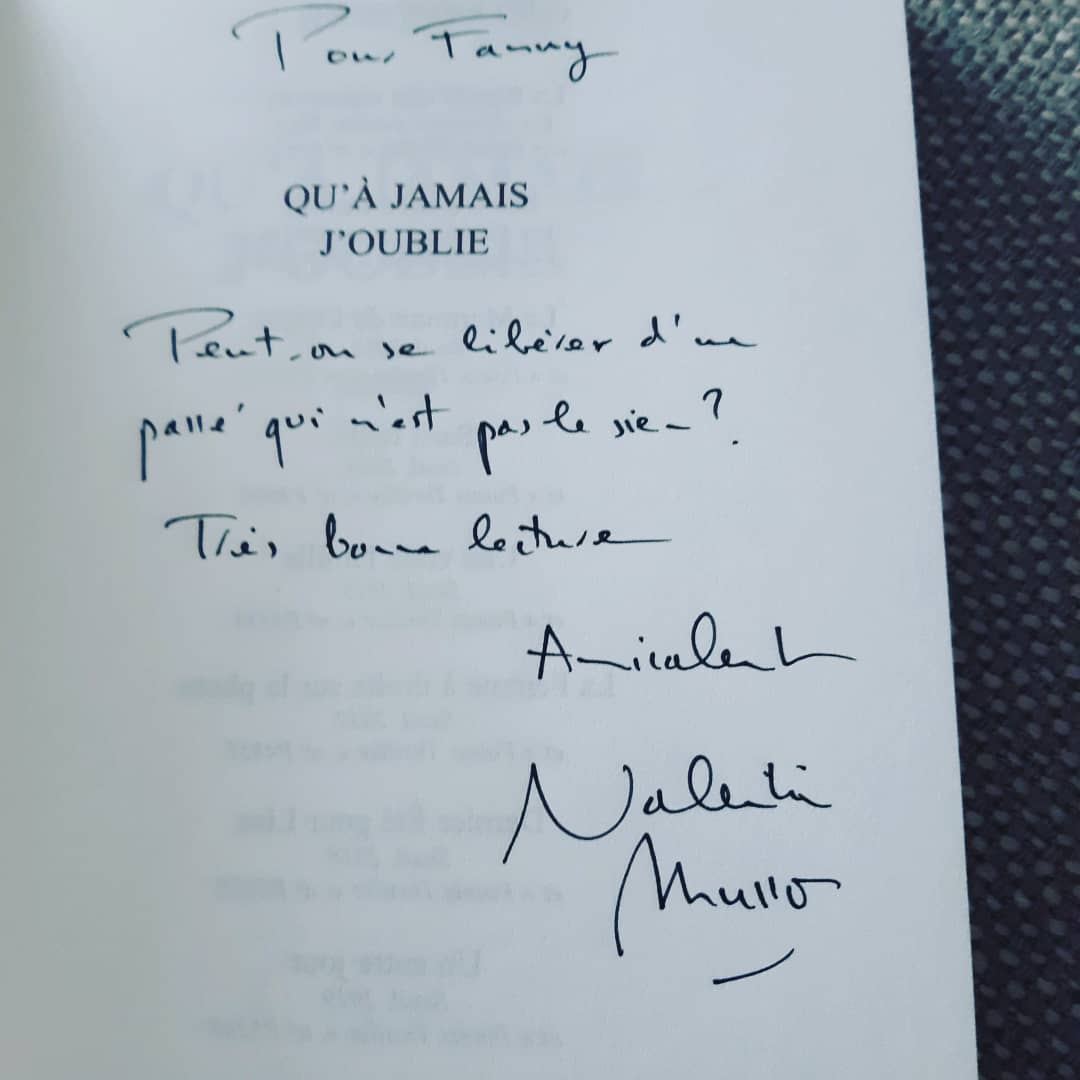 Pour Fanny
QU'À JAMAIS
J'OUBLIE
Peut-on se libérer d'un
passé qui n'est pas le sien ?
Très bonne lecture
Amicalement
Valentin
Musso